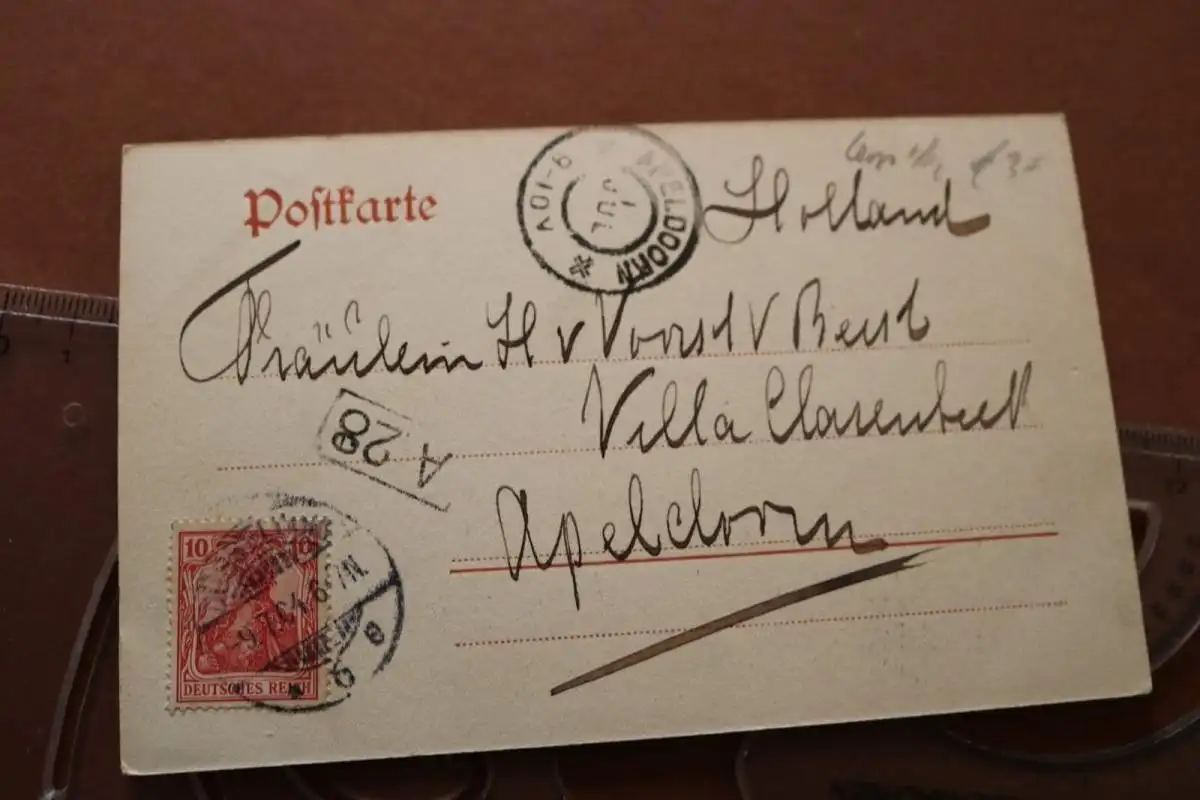 Postkarte
Holland
APELDOORN
9-10V
JUL
Fräulein H v Voorst v Beest
Villa Clarenbeek
Apeldoorn
A 28
10 10
DEUTSCHES REICH